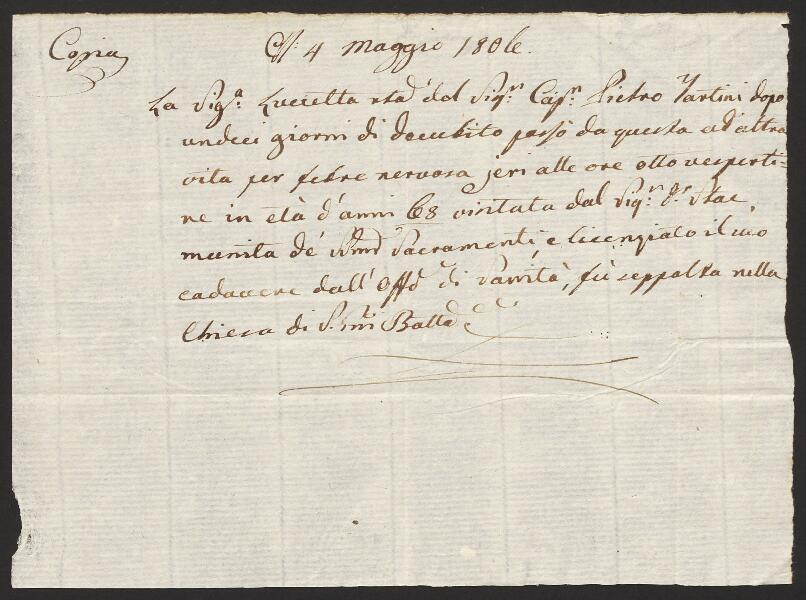 Copia
4 Maggio 1806.
La Sig.a Luccetta del Sig.r Cap.n Pietro Tartini dopo
undeci giorni di decubito passò da questa ad altra
vita per febre nervosa jeri alle ore otto vesperti-
ne in età d'anni 68 visitata dal Sig.r D.r
munita de' Sacramenti, e licenziato il suo
cadavere dall' Off.o di Sanità, fù seppolta nella
Chiesa di S. Batt.a